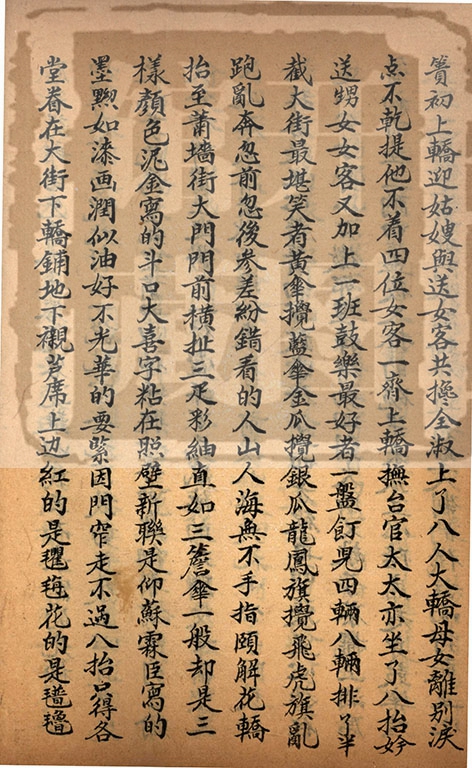 簣初上轎迎姑嫂與送女客共攙全淑上了八人大轎母女離別淚
点不乾提他不着四位女客一齊上轎撫台官太太亦坐了八抬妗
送甥女女客又加上一班鼓樂最好者一盤飣児四輛八輛排了半
截大街最堪笑者黃傘攪藍傘金瓜攪銀瓜龍鳳旗攪飛虎旗亂
跑亂奔忽前忽後参差紛錯看的人山人海無不手指頤解花轎
抬至蕭墻街大門門前橫扯三疋彩紬直如三簷傘一般却是三
樣顏色泥金寫的斗口大喜字粘在照壁新聯是仰蘇霖臣寫的
墨黝如漆画潤似油好不光華的要緊因門窄走不過八抬只得各
堂眷在大街下轎鋪地下襯芦席上边紅的是氍毹花的是氆氇